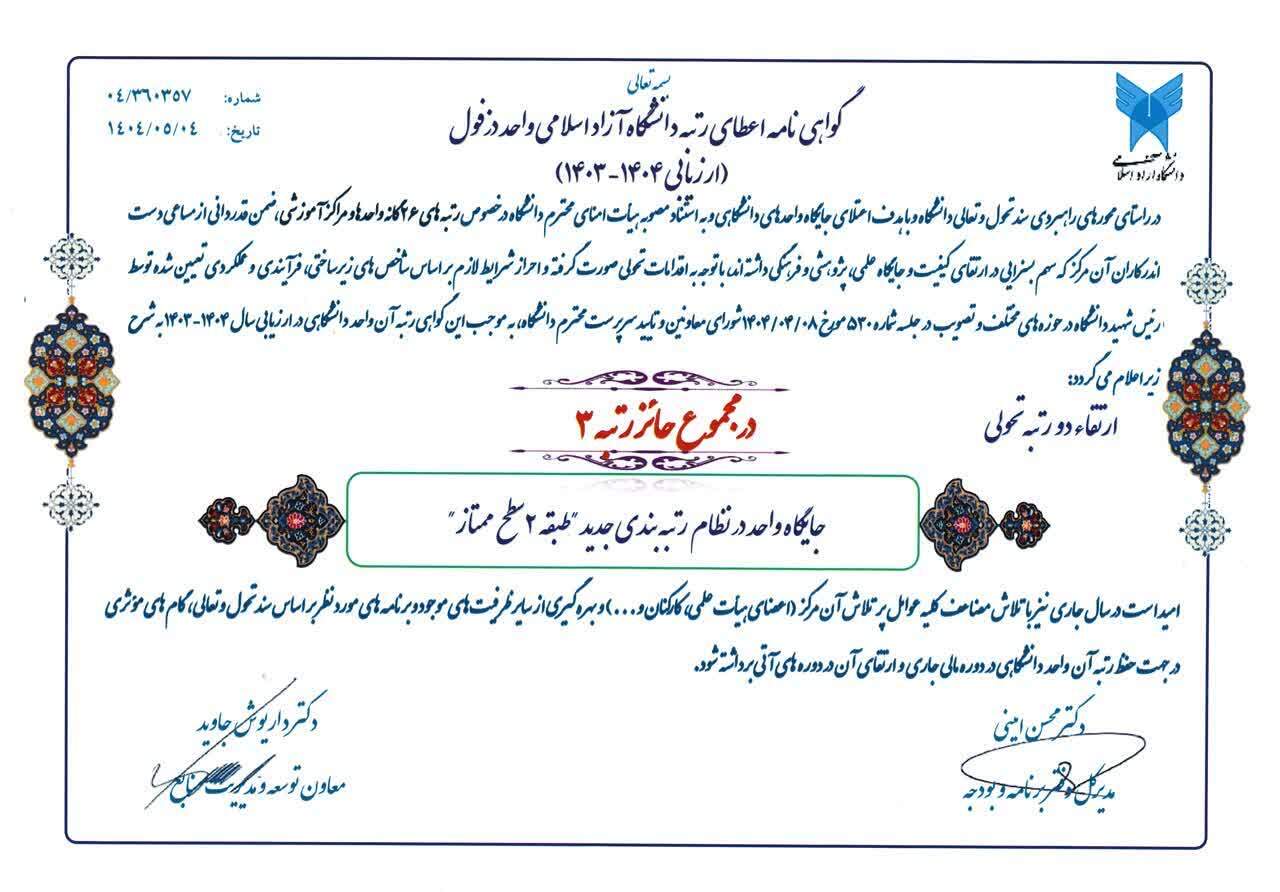 بسمه تعالی
شماره: ۰۴/۳۶۰۳۵۷
تاریخ: ۱٤۰٤/۰۵/۰٤
دانشگاه آزاد اسلامی
گواهی نامه اعطای رتبه دانشگاه آزاد اسلامی واحد دزفول
(ارزیابی ۱۴۰۴-۱۴۰۳)
در راستای محورهای راهبردی سند تحول و تعالی دانشگاه و با هدف اعتلای جایگاه واحدهای دانشگاهی و به استناد مصوبه هیأت امنای محترم دانشگاه در خصوص رتبه های ۲۶ گانه واحدها و مراکز آموزشی، ضمن قدردانی از مساعی دست
اندرکاران آن مرکز که سهم بسزایی در ارتقای کیفیت و جایگاه علمی، پژوهشی و فرهنگی داشته اند، با توجه به اقدامات تحولی صورت گرفته و احراز شرایط لازم بر اساس شاخص های زیرساختی، فرآیندی و عملکردی تعیین شده توسط
رئیس شهید دانشگاه در حوزه های مختلف و تصویب در جلسه شماره ۵۳۰ مورخ ۱۴۰۴/۰۴/۰۸ شورای معاونین و تایید سرپرست محترم دانشگاه، به موجب این گواهی رتبه آن واحد دانشگاهی در ارزیابی سال ۱۴۰۴-۱۴۰۳ به شرح
زیر اعلام می گردد:
ارتقاء دو رتبه تحولی
در مجموع حائز رتبه ۳
جایگاه واحد در نظام رتبه بندی جدید "طبقه ۲ سطح ممتاز"
امید است در سال جاری نیز با تلاش مضاعف کلیه عوامل پر تلاش آن مرکز (اعضای هیأت علمی، کارکنان و ...) و بهره گیری از سایر ظرفیت های موجود و برنامه های مورد نظر بر اساس سند تحول و تعالی، گام های مؤثری
در جهت حفظ رتبه آن واحد دانشگاهی در دوره مالی جاری و ارتقای آن در دوره های آتی برداشته شود.
دکتر محسن امینی
مدیرکل دفتر برنامه و بودجه
دکتر داریوش جاوید
معاون توسعه و مدیریت منابع